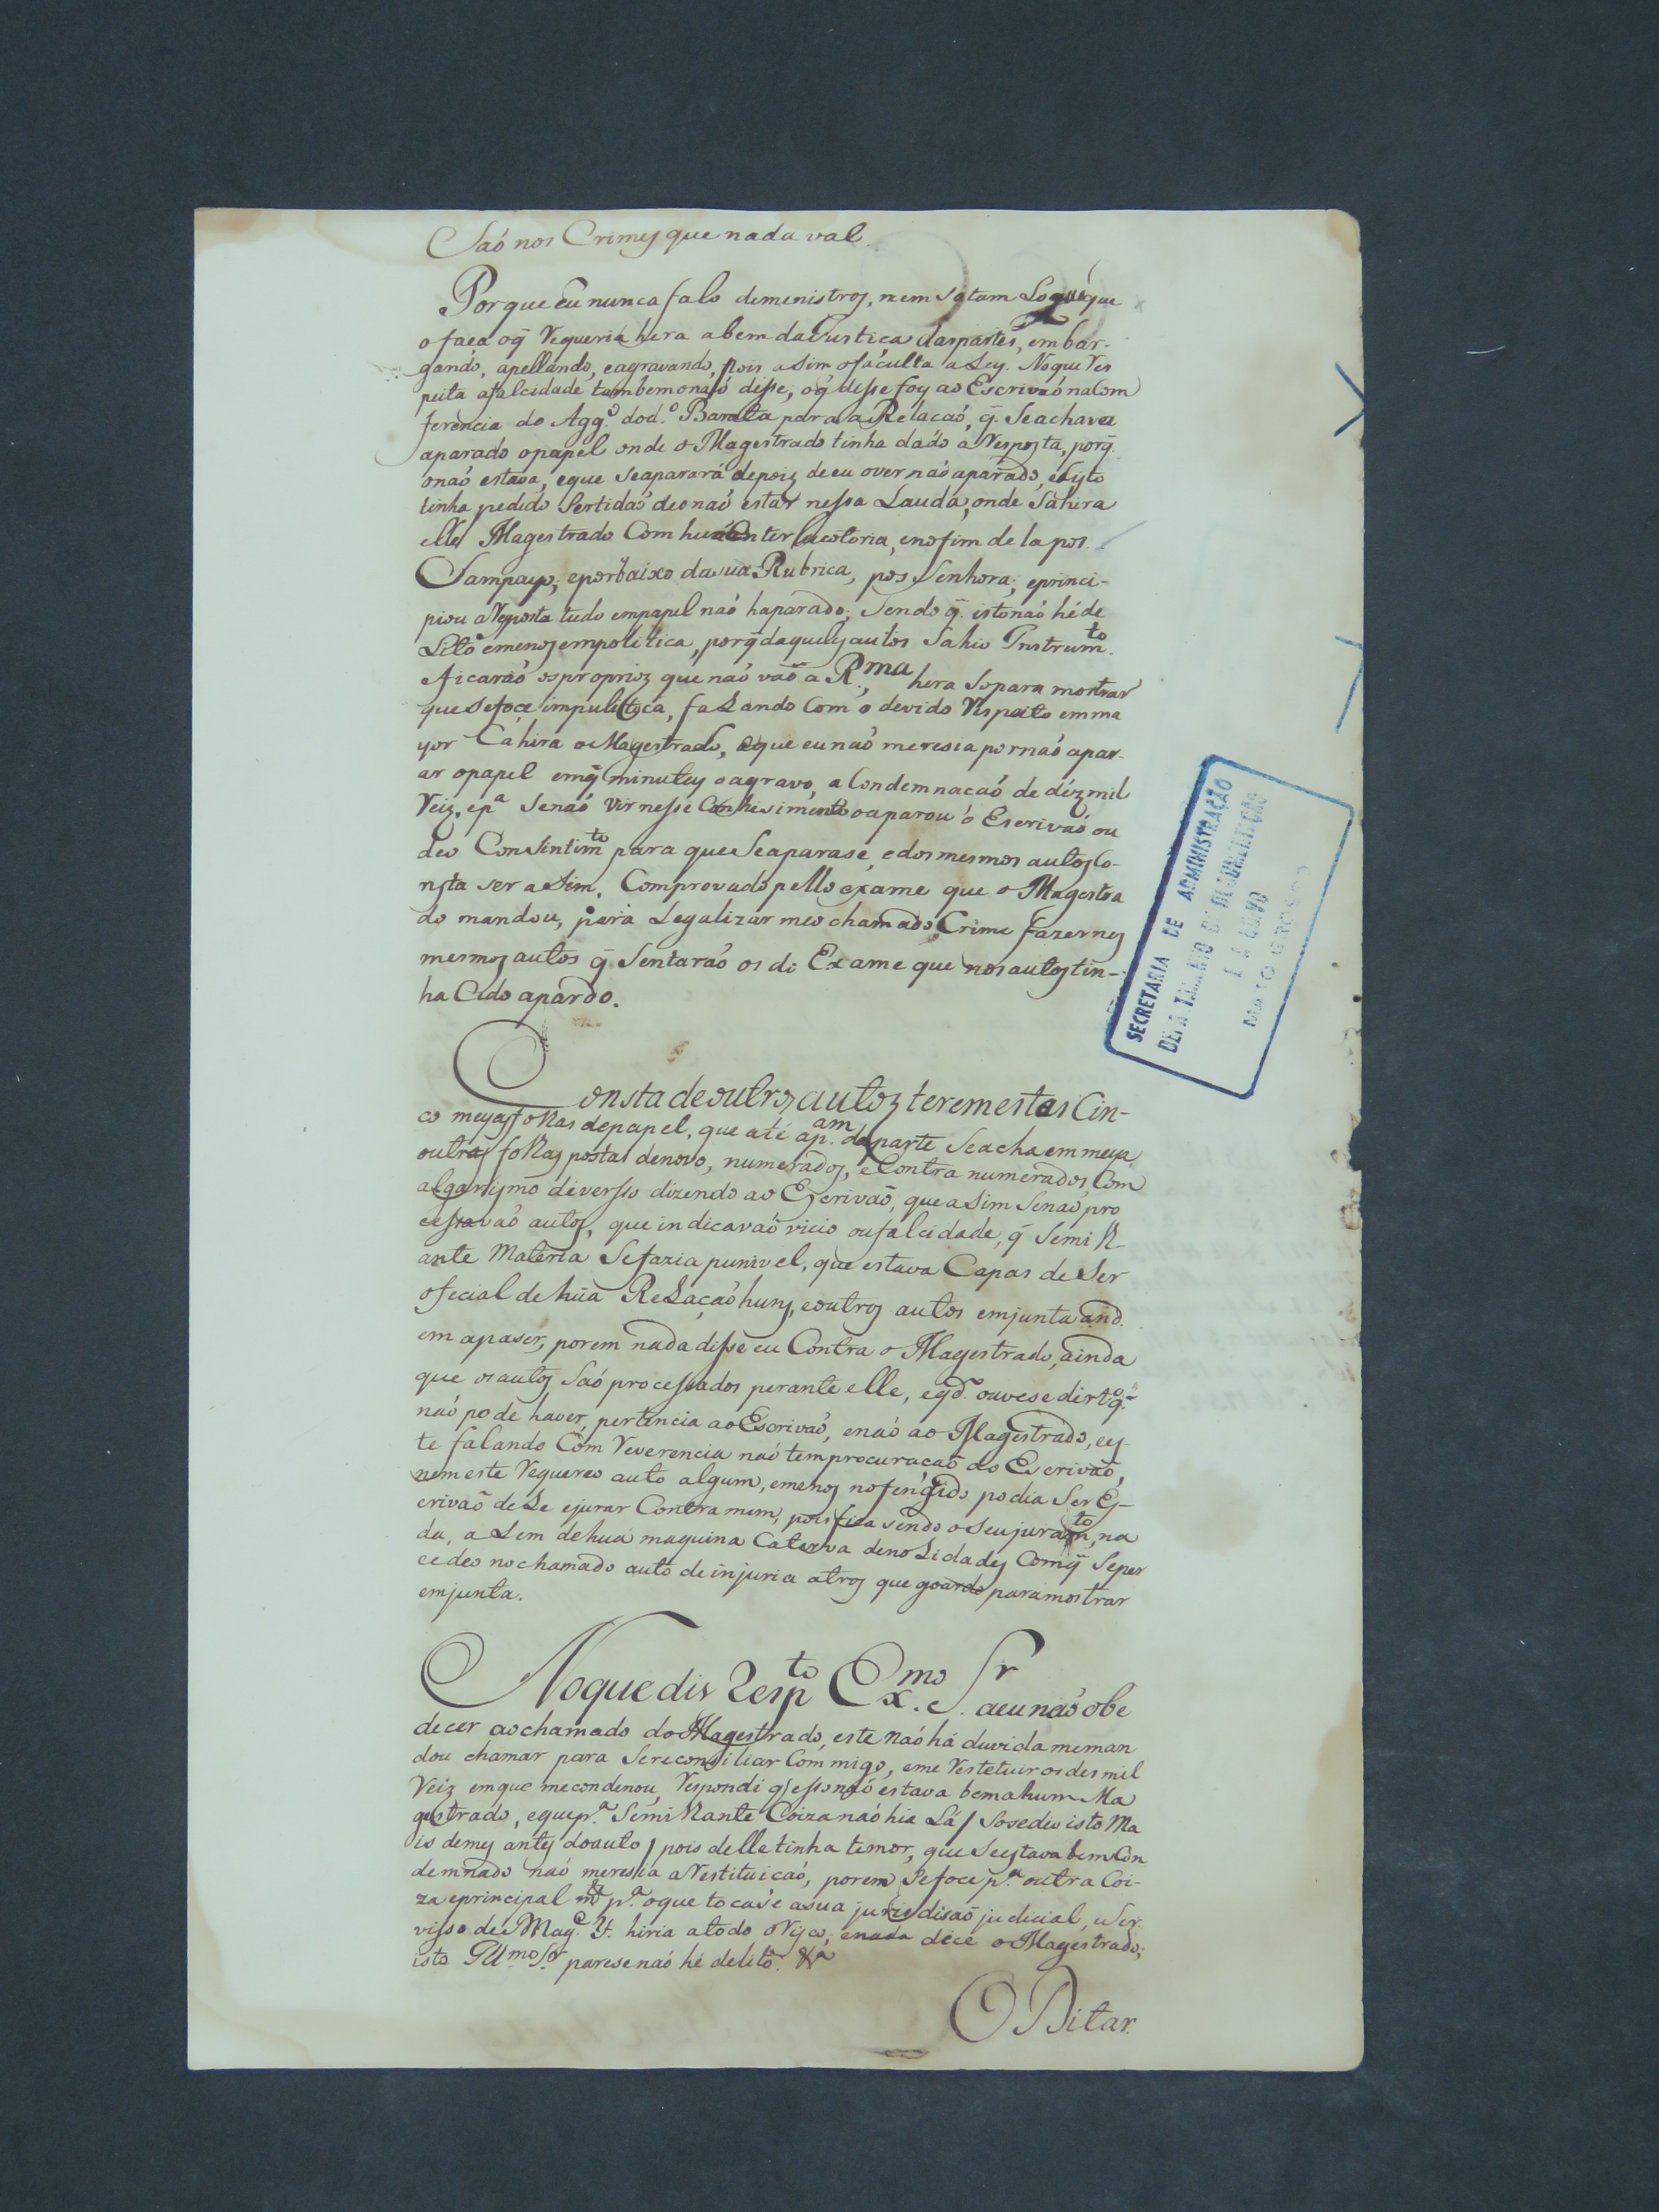 Saó nos Crimes que nada val.
Porque eu nunca falo demenistros, nem satam
ofaea oq̃ Requeria hera abem da Justiça daspartes, embar-
gando, apellando, eagravando, pois asim ofaculta a Ley. Noque res
peita afalcidade tambem onaó disse, oq̃ disse foy ao Escrivaó na Com
ferencia do Agg.º dod.º Barata para a Relacaó, q̃. Seachava
aparado opapel onde o Magestrado tinha dado a Resposta, porq̃.
onaó estava, eque seaparará depois deeu over naó aparado, eisto
tinha pedido Sertidaó deonaó estar nessa Lauda, onde Sahira
elle Magestrado Com huã Enterlucotoria, enofim de la pos.
Sampayo; eporbaixo dasua Rubrica, pos Senhora; eprinci-
piou aResposta tudo empapel naó haparado; Sendo q̃. istonaó hé de
Lito emenos empolitica, porq̃ daqueles autos Sahio Instrum.to
eficaraó osproprios que naó vaõ a R.ma, hera Sopara mostrar
que Sefoce impulitica, faLando Com o devido Respeito emma
yor Cahira o Magestrado, eque eu naó meresia por naó apar-
ar opapel emq̃ minutey oagravo, a Condemnacaó de dézmil
Reiz, ep.a Senaó vir nesse Conhesimento oaparou o Escrivaó ou
deo Consintim.to para que Seaparase, edosmesmos autos Co-
nsta ser asim, Comprovado pello exame que o Magestra
do mandou, para Legalizar meo chamado Crime fazernos
mesmos autos q̃ Sentaraó os di Exame que nos autos tin-
ha Cido apardo.
Consta deoutros autos teremestes Cin-
co meyas foRas depapel, que até ap.am daparte Seacha emmeya
outras foRas postas denovo, numerados, eContra numerados Com
algarismo diversso dizendo ao Escrivaõ, que asim Senaó pro
cessavaó autos, que indicavaõ vicio oufalcidade, q̃ Semi R-
ante Materia Sefazia punivel, que estava Capas de Ser
oficial de huã ReLaçaó huns, eoutros autos emjunta and.
em apaser, porem nada disse eu Contra o Magestrado, ainda
que os autos Saó processados perante elle, eqd.º ouvese
naó pode haver, pertencia ao Escrivaó, enaó ao Magestrado, ees
te falando Com Reverencia naó temprocuracaõ do Escrivaõ,
nem este Requereo auto algum, emenos nofengido podia Ser Es-
crivaõ deLe ejurar Contra mim, pois fica sendo o Seu juram.to, na
da, aLem dehuã maquina Caterva denoLidades Comq̃ Seper
cedeo nochamado auto deinjuria atros que goardo paramostrar
emjunta.
Noque diz Resp.to Ex.mo Sr. aeu naó obe
decer aochamado do Magestrado, este naó há duvida meman
dou chamar para Sereconsiliar Commigo, eme Restetuir os desmil
Reiz emque mecondenou, Respondi q̃ essonaó estava bem ahum Ma
gestrado, eque p.a Semi Rante Coiza naó hia Lá / Sosedeo isto Ma
is demes antes doauto / pois delle tinha temor, que Seestava bem Con
demnado naó meresia aRestituicaó, porem Sefoce p.a outra Coi-
za eprincipal m.te p.a oque tocase asua jurisdisaõ judicial, uSer
visso de Mag.e hiria atodo oRisco; enada dice o Magestrado;
isto Ill.mo Sr. paresenaó hé delito. &a
O Ditar.
SECRETARIA DE ADMINISTRAÇÃO
DEPARTAMENTO DE DOCUMENTAÇÃO
E ARQUIVO
MATO GROSSO